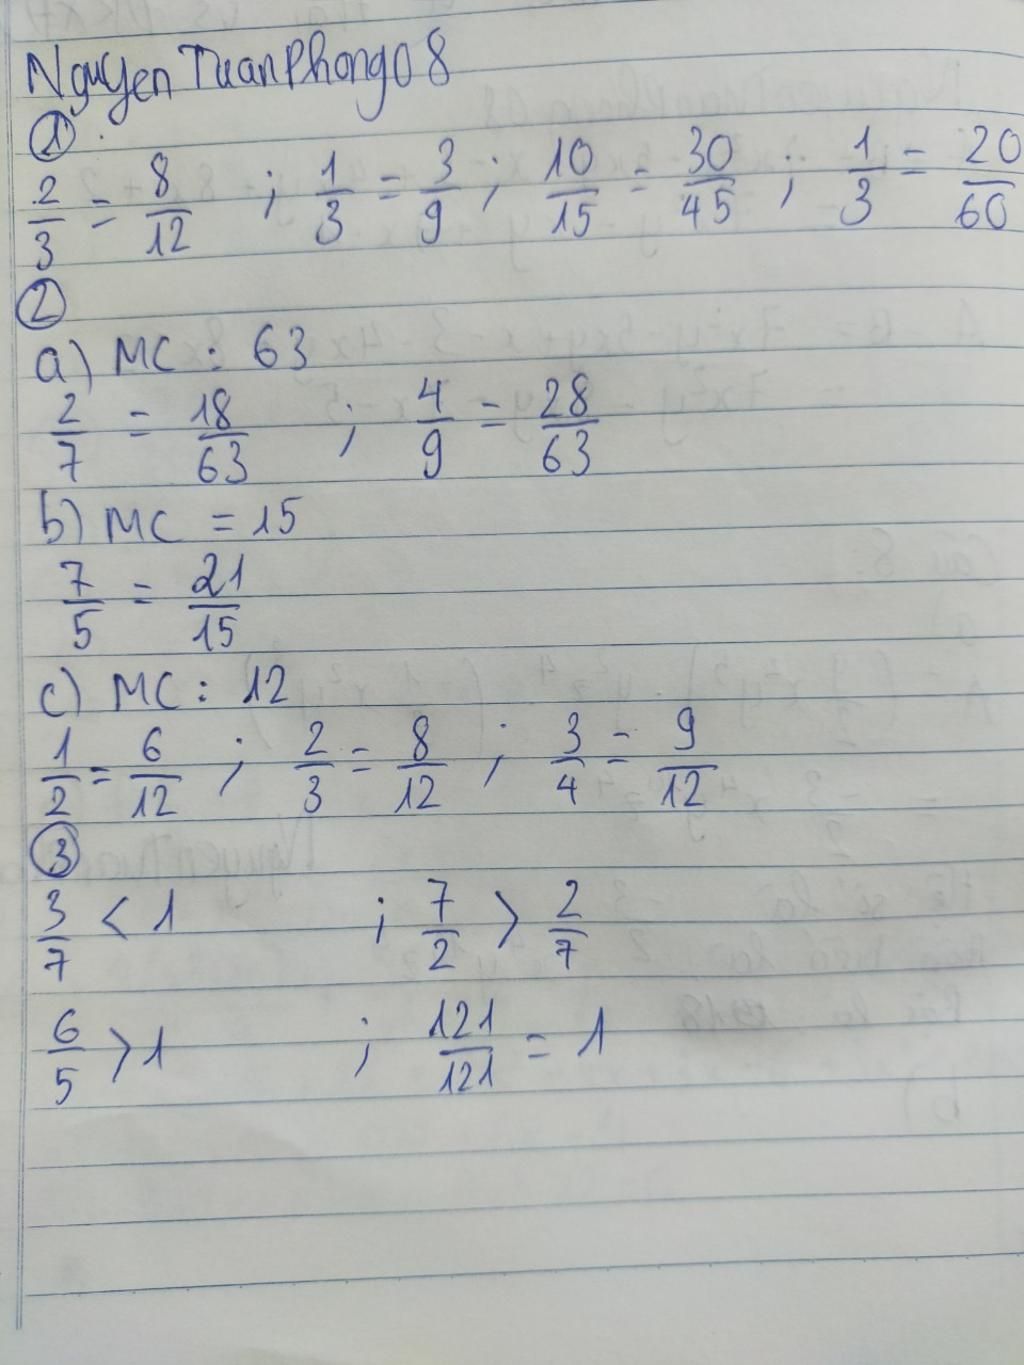 Nguyen Tuan Phong 08
①
2/3 = 8/12 ; 1/3 = 3/9 ; 10/15 = 30/45 ; 1/3 = 20/60
②
a) MC : 63
2/7 = 18/63 ; 4/9 = 28/63
b) MC = 15
7/5 = 21/15
c) MC : 12
1/2 = 6/12 ; 2/3 = 8/12 ; 3/4 = 9/12
③
3/7 < 1 ; 7/2 > 2/7
6/5 > 1 ; 121/121 = 1